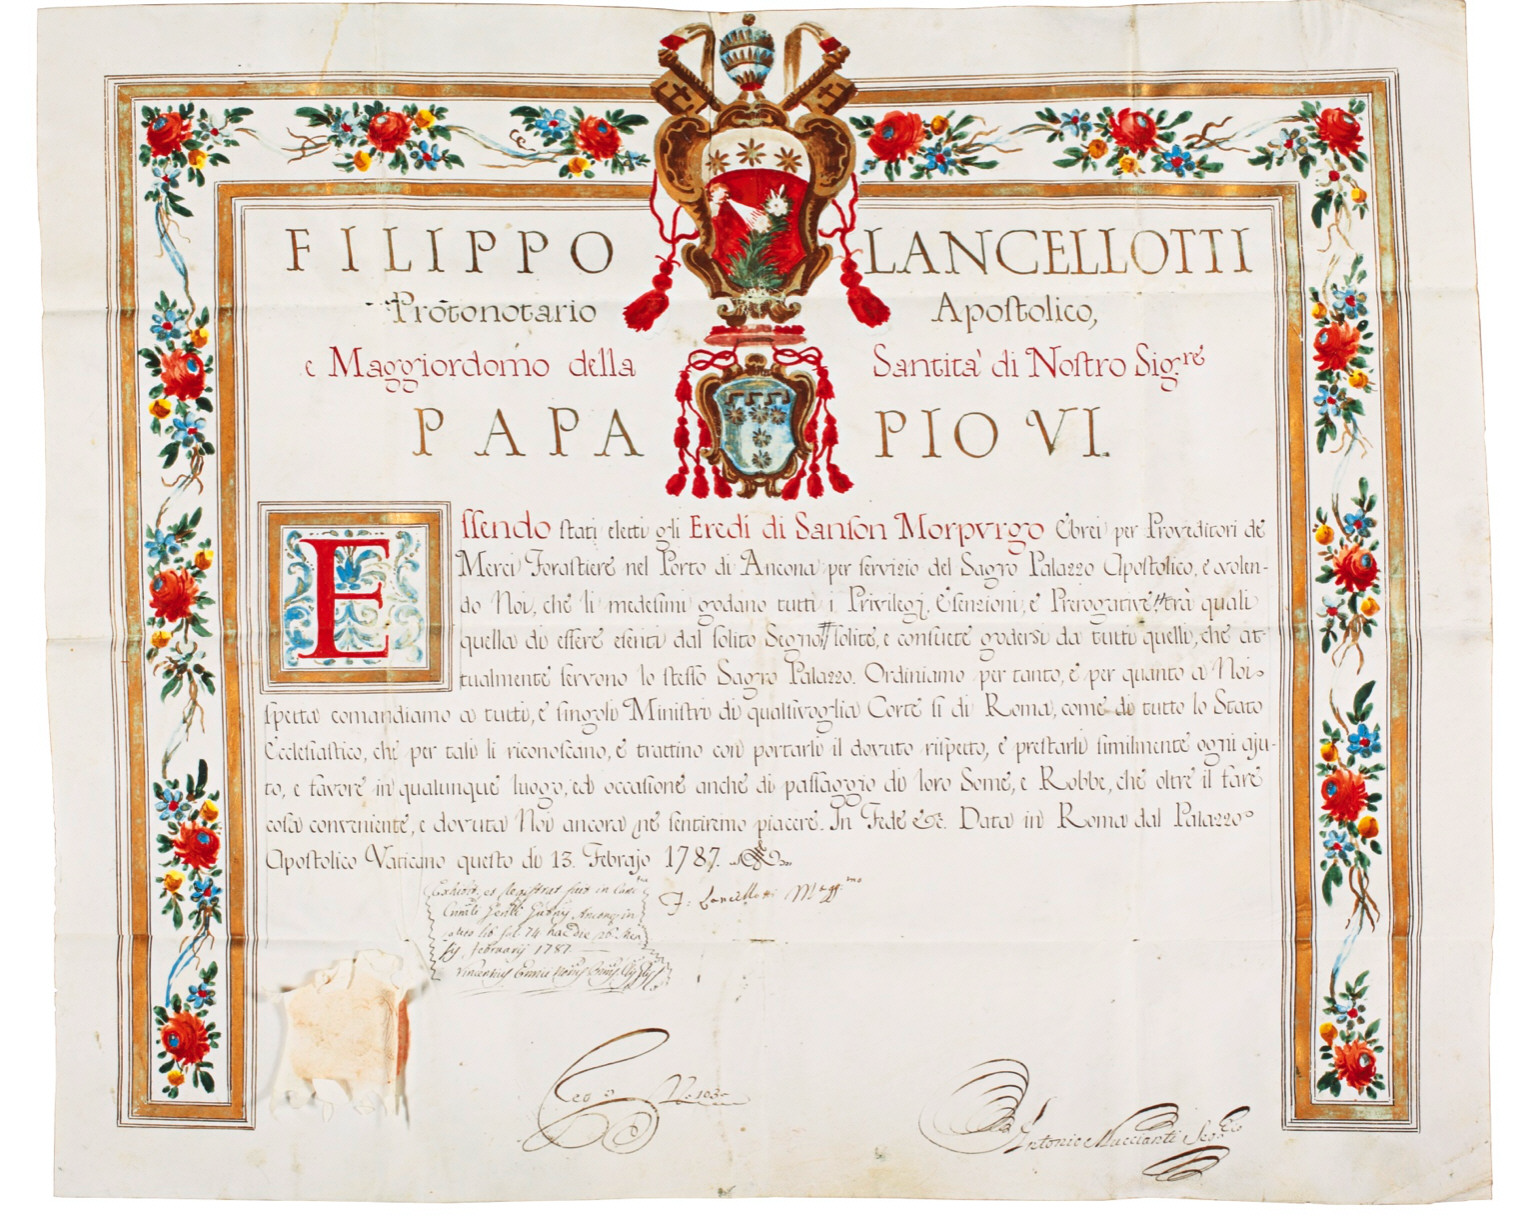 FILIPPO LANCELLOTTI
Protonotario Apostolico,
e Maggiordomo della Santità di Nostro Sig.re
PAPA PIO VI.
Essendo stati eletti gli Eredi di Sanson Morpurgo Ebrei per Proveditori de
Merci Forastiere nel Porto di Ancona per servizio del Sagro Palazzo Apostolico, e volen-
do Noi, che li medesimi godano tutti i Privilegj, Esenzioni, e Prerogative trà quali
quella di essere esenti dal solito Segno solite, e consuete godersi da tutti quelli, che at-
tualmente servono lo stesso Sagro Palazzo. Ordiniamo per tanto, e per quanto a Noi
spetta comandiamo a tutti, e singoli Ministri di qualsivoglia Corte si di Roma, come di tutto lo Stato
Ecclesiastico, che per tali li riconoscano, e trattino con portarli il dovuto rispetto, e prestarli similmente ogni aju-
to, e favore in qualunque luogo, ed occasione anche di passaggio di loro Some, e Robbe, che oltre il fare
cosa conveniente, e dovuta Noi ancora ne sentiremo piacere. In Fede &c. Data in Roma dal Palazzo
Apostolico Vaticano questo dì 13. Febrajo 1787.
F: Lancellotti Magg.mo
fol. 74 hac die 26
february 1787
Reg.o N.o 103
Antonio Muccianti Seg.rio